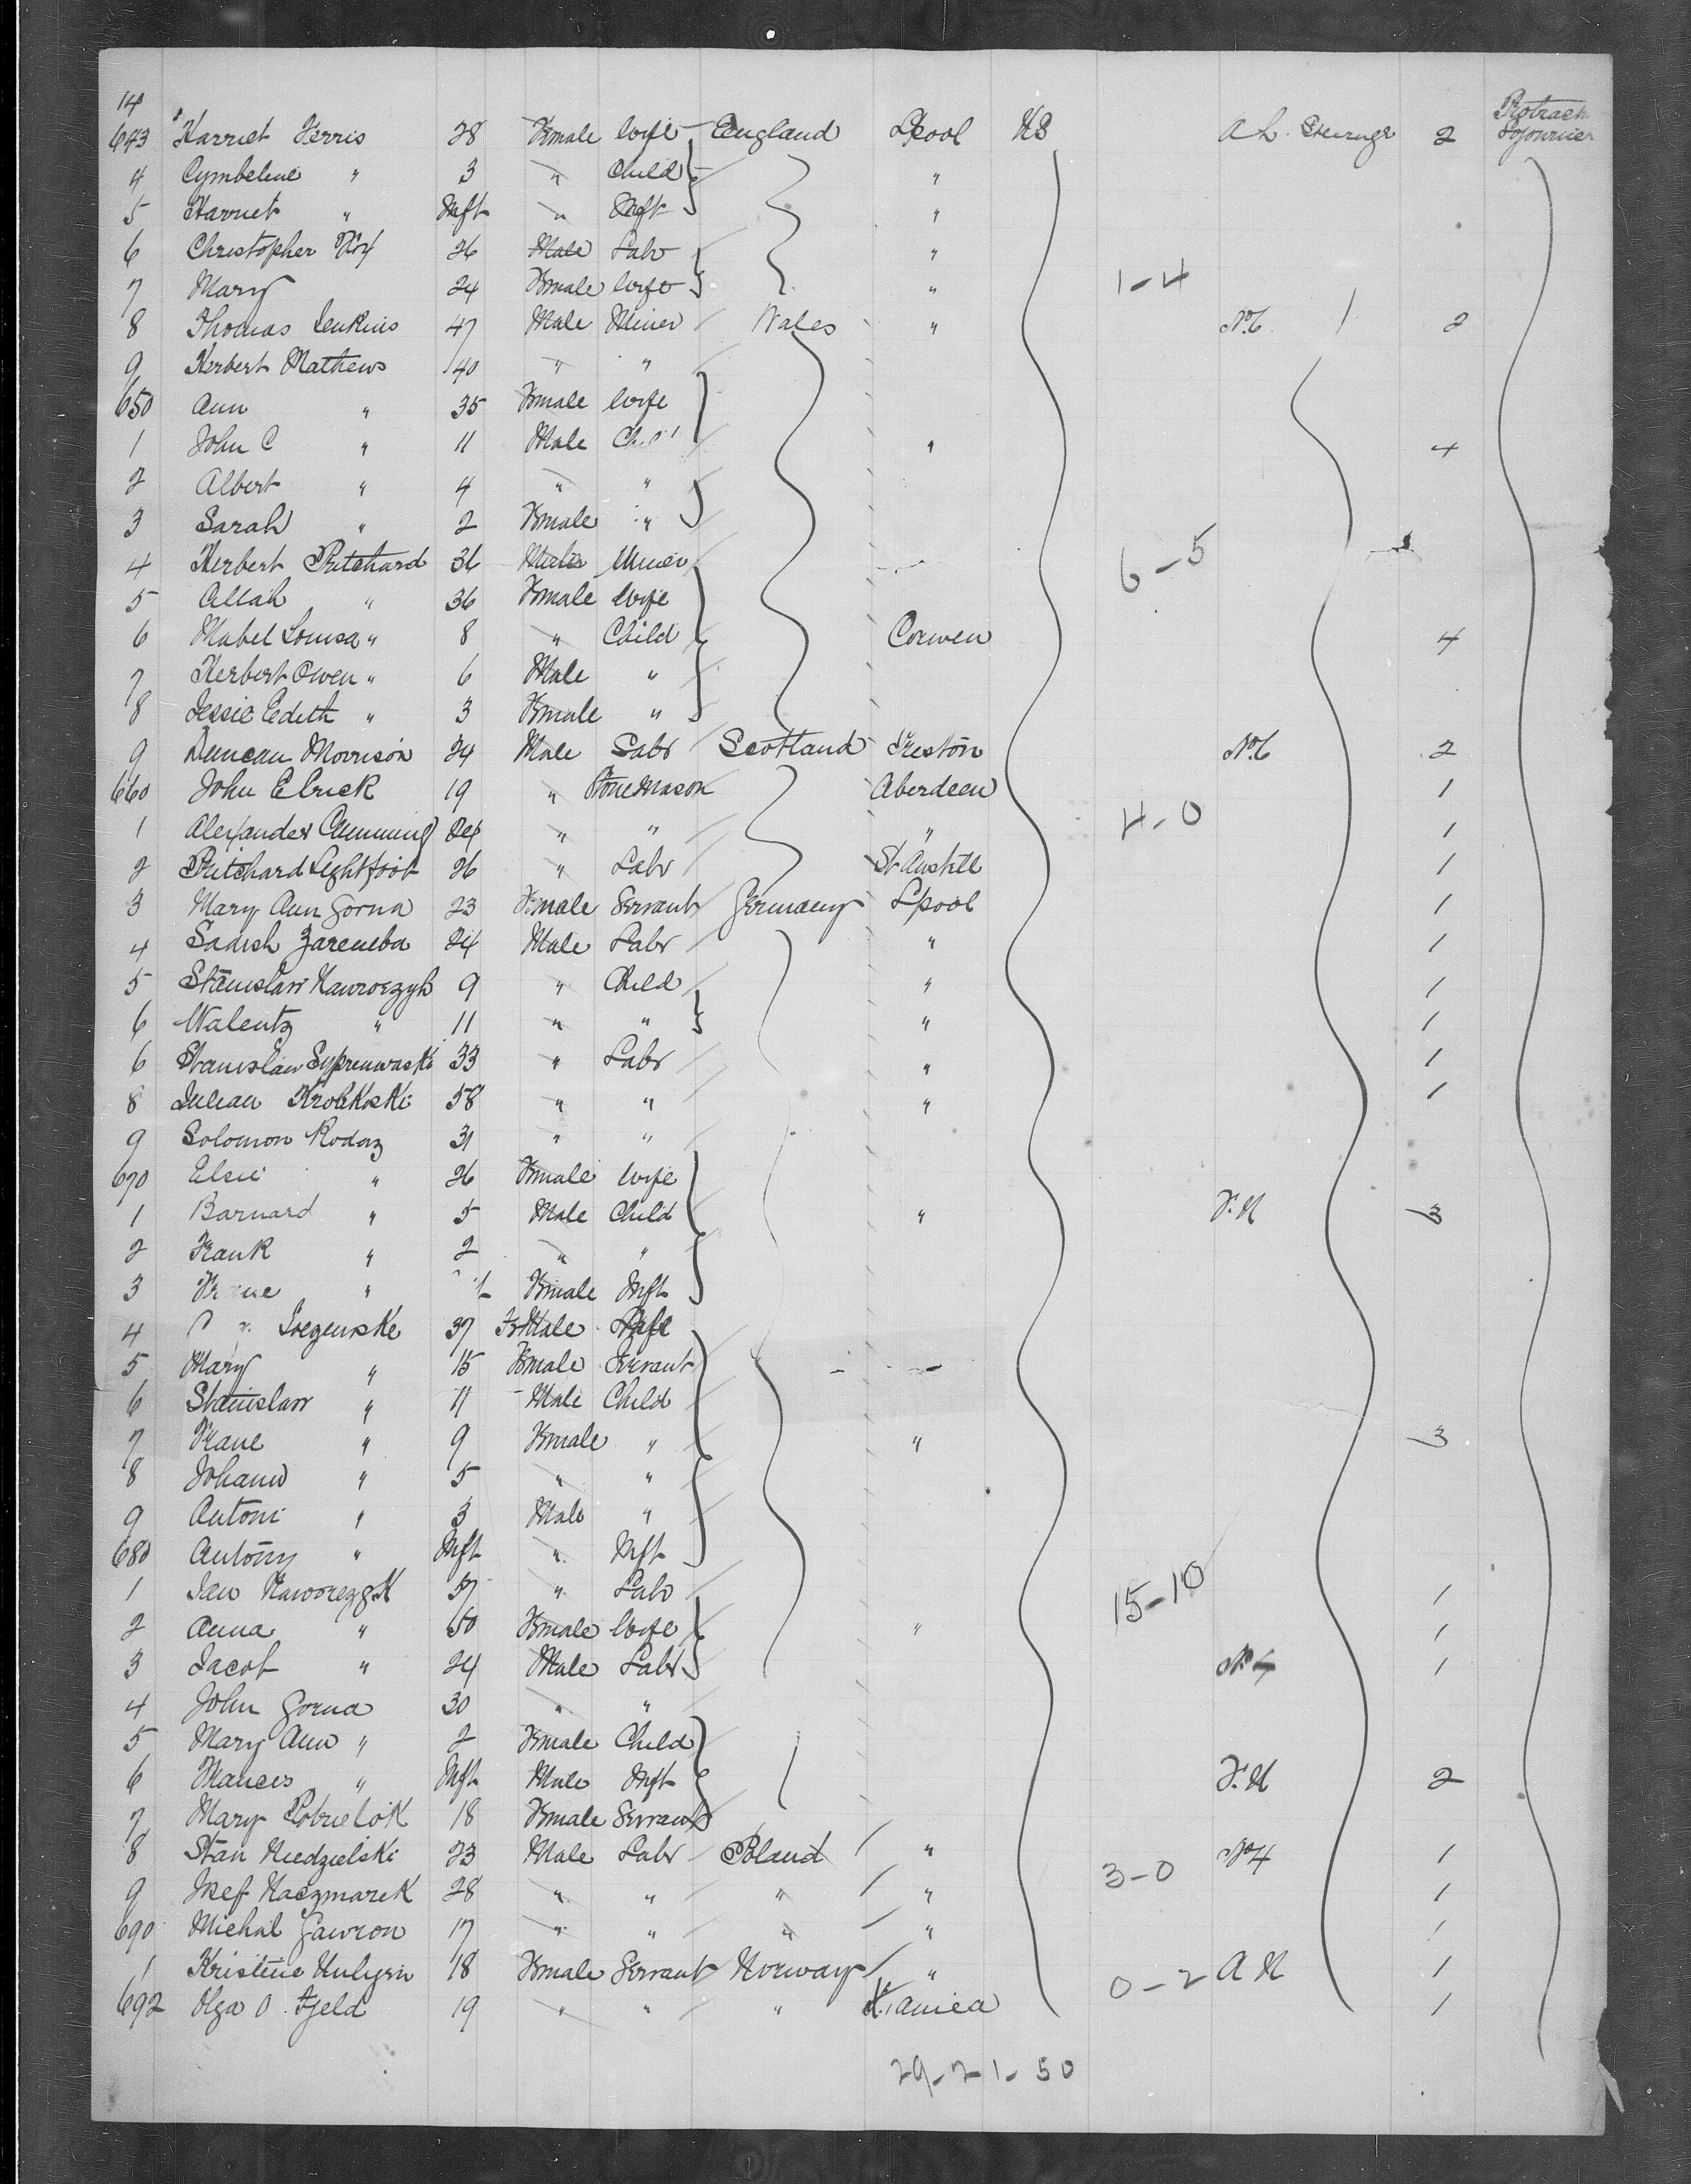 14
643 Harriet Ferris 28 Female Wife England Lpool US A L Steerage 2 Protracted Sojourner
4 Cymbeline " 3 " Child "
5 Harriet " Inft " Inft "
6 Christopher 26 Male Labr "
7 Mary 24 Female Wife " 1-4
8 Thomas Jenkins 47 Male Miner Wales " No 6 / 2
9 Herbert Mathews 40 " "
650 Ann " 35 Female Wife
1 John C " 11 Male " 4
2 Albert " 4 " "
3 Sarah " 2 Female "
4 Herbert Pritchard 36 Male Miner 6-5
5 Allah " 36 Female Wife
6 Mabel Louisa " 8 " Child Corwen 4
7 Herbert Owen " 6 Male "
8 Jessie Edith " 3 Female "
9 Duncan Morrison 24 Male Labr Scotland Preston No 6 2
660 John Elrick 19 " Stone Mason Aberdeen 1
1 Alexander Cumming 24 " " " 4-0 1
2 Pritchard Lightfoot 26 " Labr St Austell 1
3 Mary Ann Gorna 23 Female Servant Germany Lpool 1
4 Sadish Zaremba 24 Male Labr " 1
5 Stanislaw Nawroczyk 9 " Child " 1
6 Walentz " 11 " " " 1
6 Stanislaw 33 " Labr " 1
8 Julian 58 " " " 1
9 Solomon Rodaz 31 " "
670 Elsie " 26 Female Wife
1 Barnard " 5 Male Child " F.N 3
2 Frank " 2 " "
3 " Female Inft
4 37 Male
5 Mary " 15 Female Servant
6 Stanislaw " 11 Male Child
7 Frane " 9 Female " " 3
8 Johann " 5 " "
9 Antoni " 3 Male "
680 Antony " Inft " Inft
1 Jan 57 " Labr 15-10 1
2 Anna " 50 Female Wife " 1
3 Jacob " 24 Male Labr 1
4 John Gorna 30 " "
5 Mary Ann " 2 Female Child
6 Frances " Inft Male Inft F.N 2
7 Mary 18 Female Servant
8 Stan Niedzielski 23 Male Labr Poland " 3-0 No 4 1
9 Josef Kaczmarek 28 " " " " 1
690 Michal Gawron 17 " " " " 1
1 Kristine 18 Female Servant Norway " 0-2 A N 1
692 Olga O. Fjeld 19 " " " X.iania 1
29-21-50